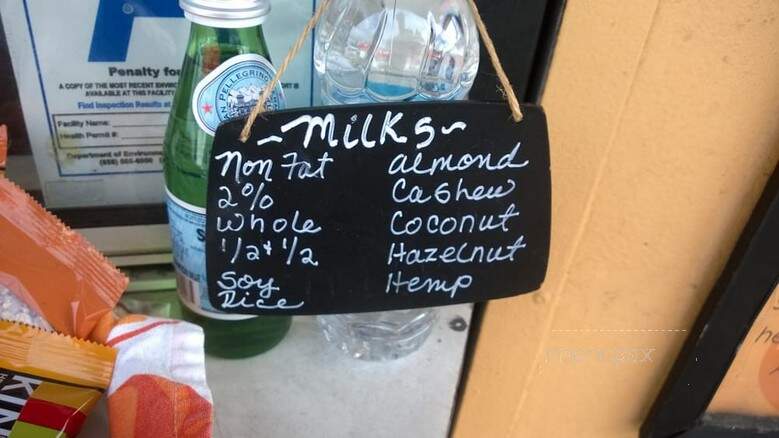 Penalty for
A COPY OF THE MOST RECENT
AVAILABLE AT THIS FACILITY
Find Inspection Results at
Facility Name:
Health Permit #:
Department of
PELLEGRINO
~Milks~
Non Fat
2%
Whole
1/2 + 1/2
Soy
Rice
almond
Cashew
Coconut
Hazelnut
Hemp
KIN